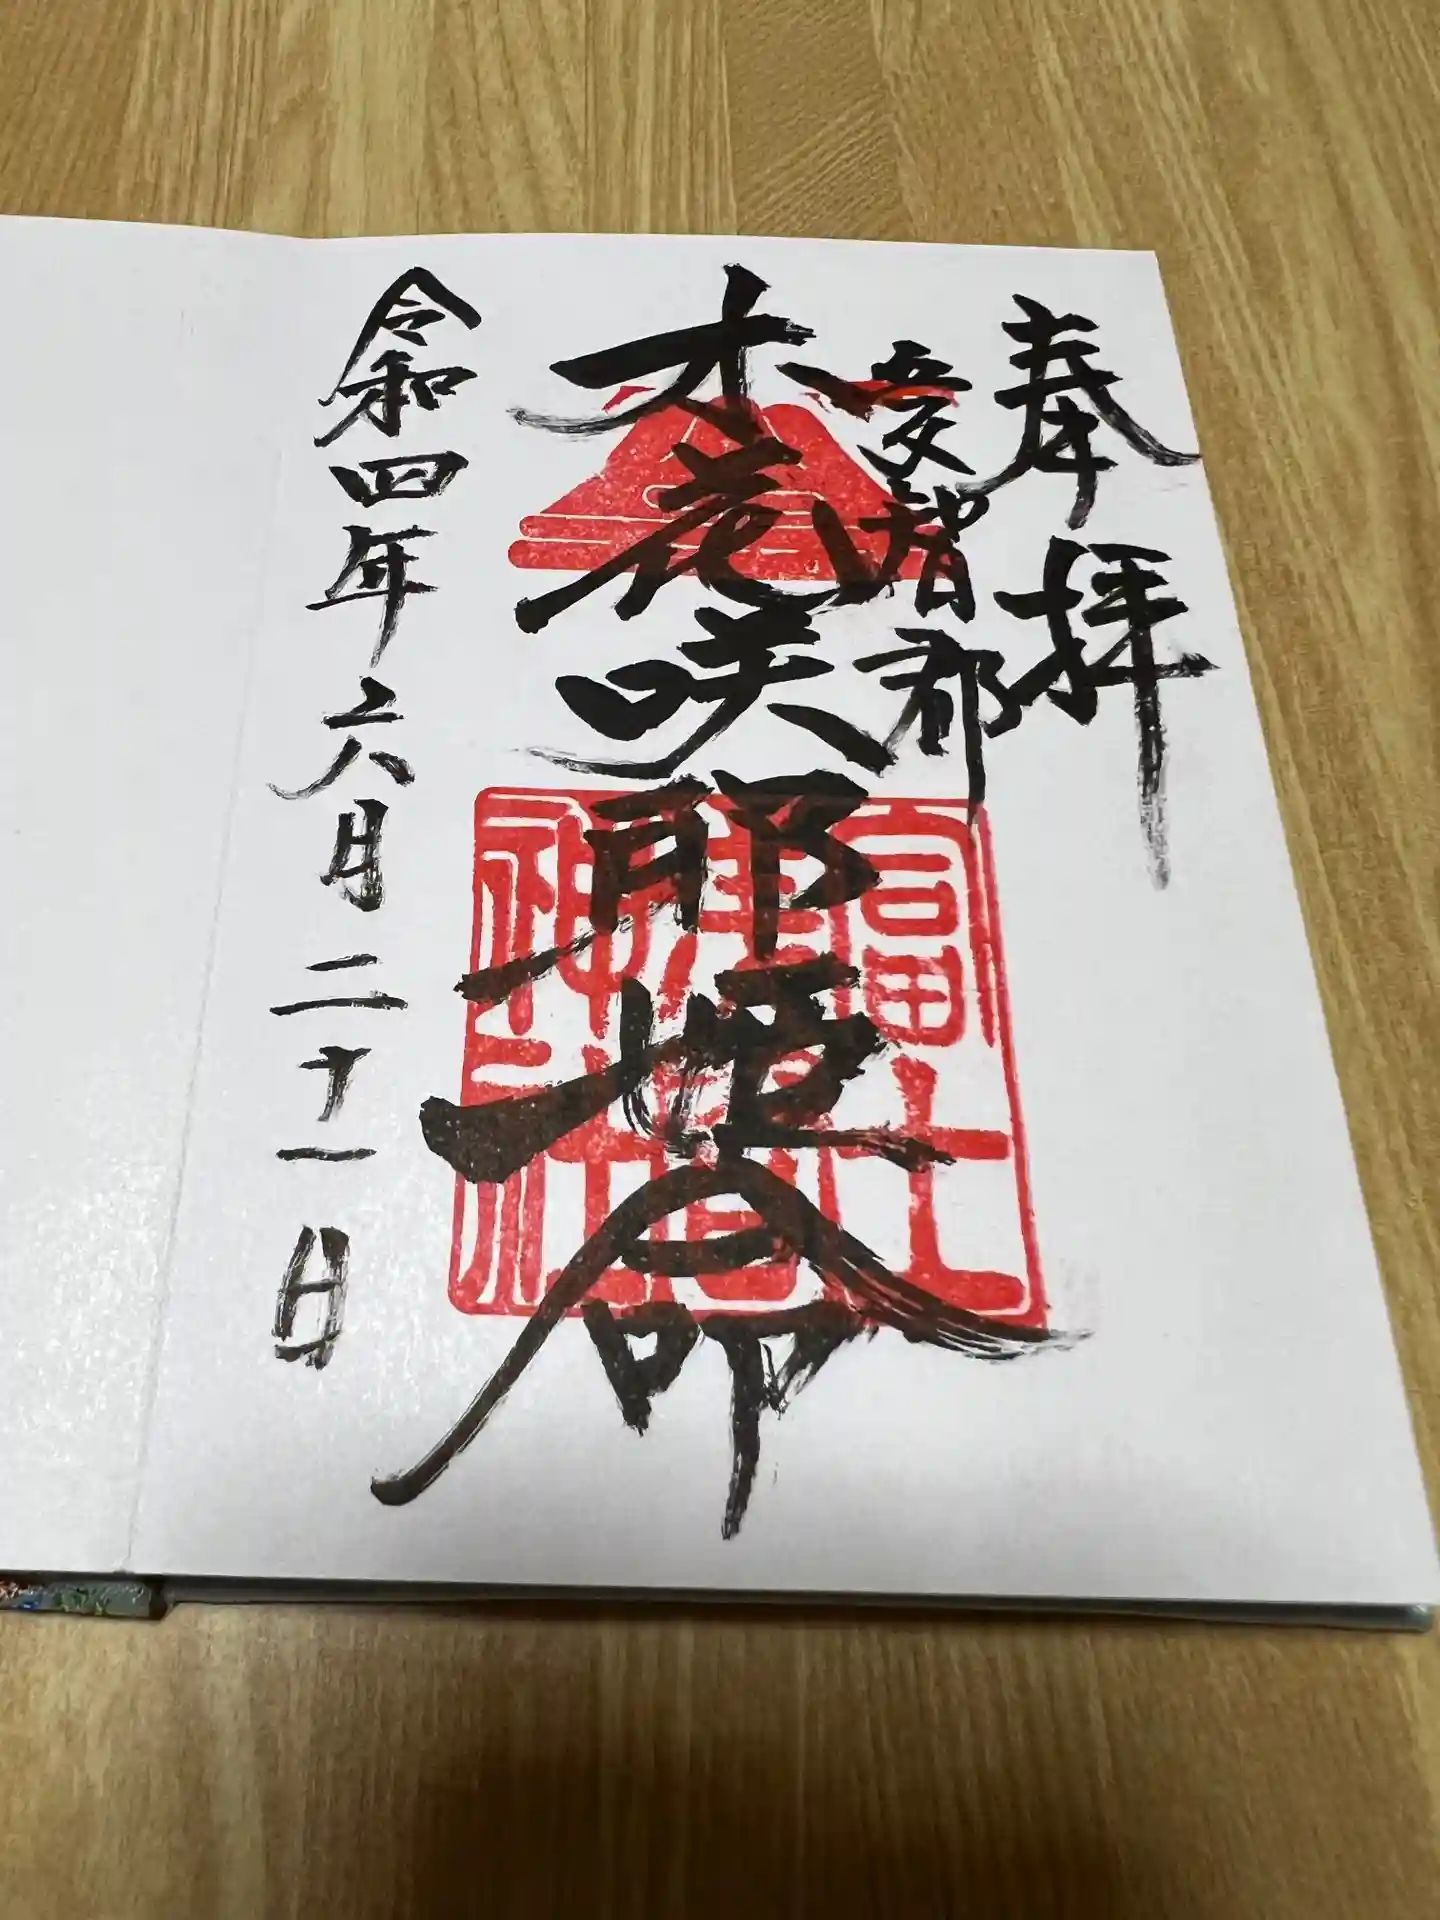 奉拝
愛智郡
木花咲耶姫命
富士
神社
令和四年六月二十一日